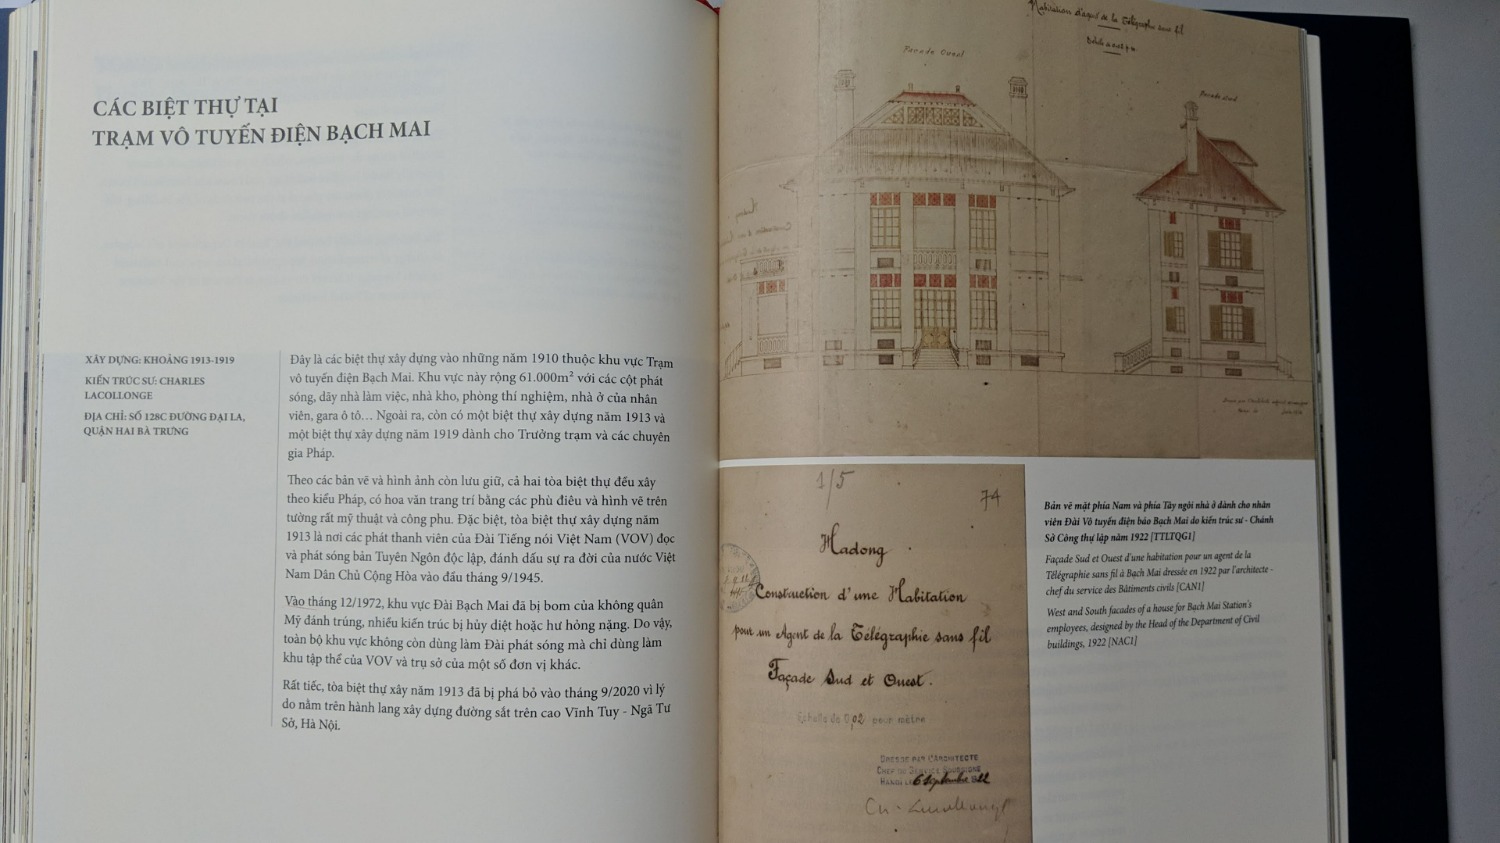 CÁC BIỆT THỰ TẠI
TRẠM VÔ TUYẾN ĐIỆN BẠCH MAI
XÂY DỰNG: KHOẢNG 1913-1919
KIẾN TRÚC SƯ: CHARLES
LACOLLONGE
ĐỊA CHỈ: SỐ 128C ĐƯỜNG ĐẠI LA,
QUẬN HAI BÀ TRƯNG
Đây là các biệt thự xây dựng vào những năm 1910 thuộc khu vực Trạm
vô tuyến điện Bạch Mai. Khu vực này rộng 61.000m² với các cột phát
sóng, dãy nhà làm việc, nhà kho, phòng thí nghiệm, nhà ở của nhân
viên, gara ô tô… Ngoài ra, còn có một biệt thự xây dựng năm 1913 và
một biệt thự xây dựng năm 1919 dành cho Trưởng trạm và các chuyên
gia Pháp.
Theo các bản vẽ và hình ảnh còn lưu giữ, cả hai tòa biệt thự đều xây
theo kiểu Pháp, có hoa văn trang trí bằng các phù điêu và hình vẽ trên
tường rất mỹ thuật và công phu. Đặc biệt, tòa biệt thự xây dựng năm
1913 là nơi các phát thanh viên của Đài Tiếng nói Việt Nam (VOV) đọc
và phát sóng bản Tuyên Ngôn độc lập, đánh dấu sự ra đời của nước Việt
Nam Dân Chủ Cộng Hòa vào đầu tháng 9/1945.
Vào tháng 12/1972, khu vực Đài Bạch Mai đã bị bom của không quân
Mỹ đánh trúng, nhiều kiến trúc bị hủy diệt hoặc hư hỏng nặng. Do vậy,
toàn bộ khu vực không còn dùng làm Đài phát sóng mà chỉ dùng làm
khu tập thể của VOV và trụ sở của một số đơn vị khác.
Rất tiếc, tòa biệt thự xây năm 1913 đã bị phá bỏ vào tháng 9/2020 vì lý
do nằm trên hành lang xây dựng đường sắt trên cao Vĩnh Tuy - Ngã Tư
Sở, Hà Nội.
Habitation d'agent de la Télégraphie sans fil
Façade Ouest
Façade Sud
1/5
74
Hadong
Construction d'une Habitation
pour un Agent de la Télégraphie sans fil
Façade Sud et Ouest.
Echelle de 0,02 pour mètre
DRESSÉ PAR L'ARCHITECTE
CHEF DU SERVICE
HANOI LE 6 Septembre 1922
Bản vẽ mặt phía Nam và phía Tây ngôi nhà ở dành cho nhân
viên Đài Vô tuyến điện báo Bạch Mai do kiến trúc sư - Chánh
Sở Công thự lập năm 1922 [TTLTQG1]
Façade Sud et Ouest d'une habitation pour un agent de la
Télégraphie sans fil à Bạch Mai dressée en 1922 par l'architecte -
chef du service des Bâtiments civils [CAN1]
West and South facades of a house for Bạch Mai Station's
employees, designed by the Head of the Department of Civil
buildings, 1922 [NAC1]